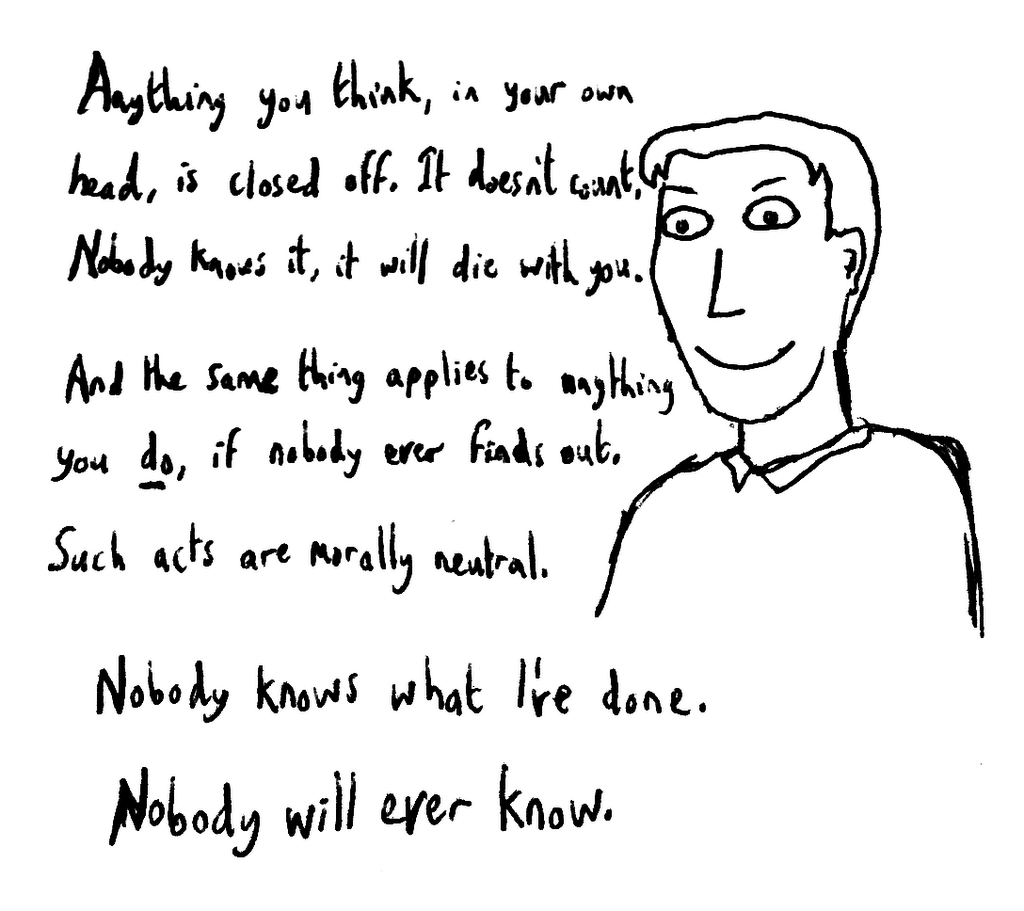 Anything you think, in your own
head, is closed off. It doesn't count.
Nobody knows it, it will die with you.
And the same thing applies to anything
you do, if nobody ever finds out.
Such acts are morally neutral.
Nobody knows what I've done.
Nobody will ever know.